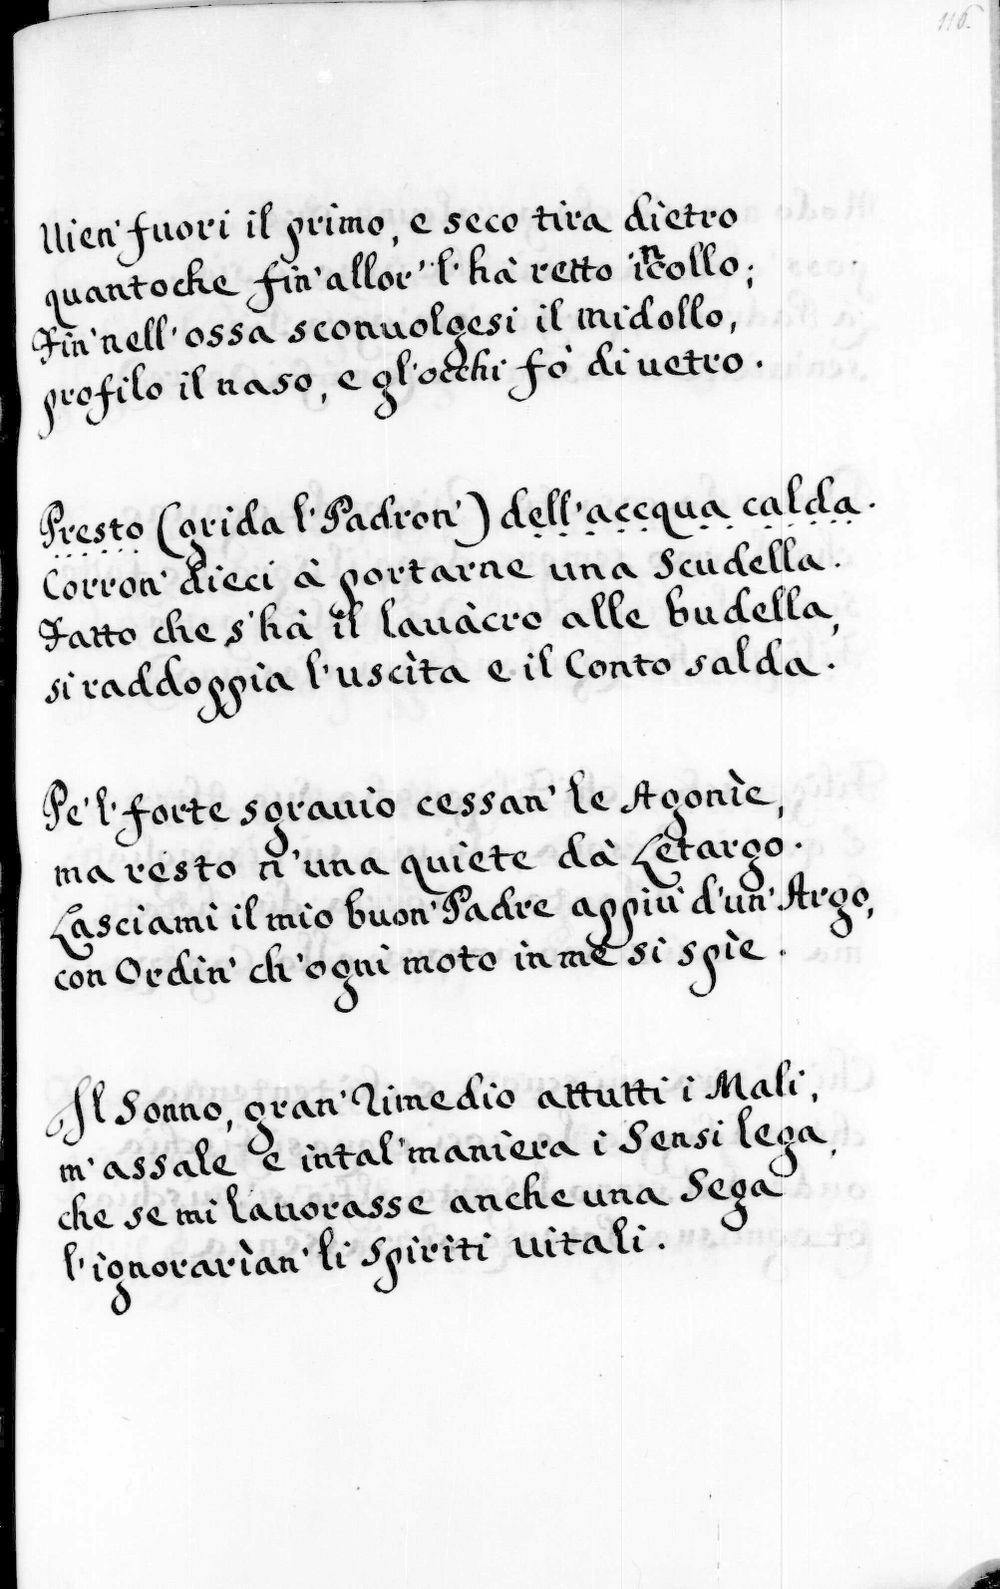 116.
Uien' fuori il primo, e seco tira dietro
quantoche fin' allor' l' hà retto in collo;
Fin' nell' ossa sconuolgesi il midollo,
profilo il naso, e gl' occhi fò di uetro.
Presto (grida l' Padron') dell' accqua calda.
Corron' dieci à portarne una Scudella.
Fatto che s' hà il lauàcro alle budella,
si raddoppia l' uscìta e il Conto salda.
Pe' l' forte sgrauio cessan' le Agonìe,
ma resto n' una quiete dà Letargo.
Lasciami il mio buon' Padre appiù d' un' Argo,
con Ordin' ch' ogni moto in me si spìe.
Il Sonno, gran' Rimedio attutti i Mali,
m' assale e intal' manièra i Sensi lega,
che se mi lauorasse anche una Sega
l' ignorarìan' li Spiriti uitali.